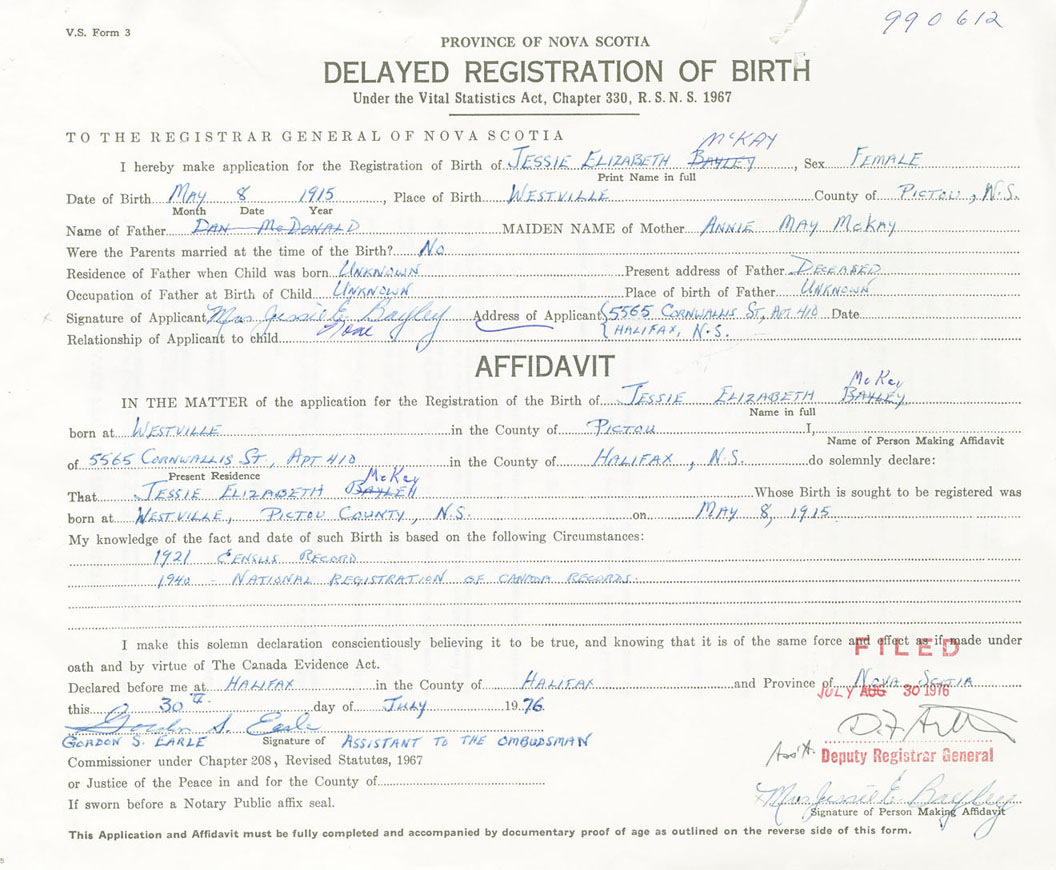 V.S. Form 3
990612
PROVINCE OF NOVA SCOTIA
DELAYED REGISTRATION OF BIRTH
Under the Vital Statistics Act, Chapter 330, R.S.N.S. 1967
TO THE REGISTRAR GENERAL OF NOVA SCOTIA
McKAY
I hereby make application for the Registration of Birth of JESSIE ELIZABETH BAYLEY, Sex FEMALE
Print Name in full
Date of Birth MAY 8 1915, Place of Birth WESTVILLE County of PICTOU, N.S.
Month Date Year
Name of Father DAN McDONALD MAIDEN NAME of Mother ANNIE MAY McKAY
Were the Parents married at the time of the Birth? No
Residence of Father when Child was born UNKNOWN Present address of Father DECEASED
Occupation of Father at Birth of Child UNKNOWN Place of birth of Father UNKNOWN
Signature of Applicant Mrs Jessie E. Bayley Address of Applicant 5565 CORNWALLIS ST, APT 410 Date
Relationship of Applicant to child HALIFAX, N.S.
AFFIDAVIT
McKay
IN THE MATTER of the application for the Registration of the Birth of JESSIE ELIZABETH BAYLEY
Name in full
born at WESTVILLE in the County of PICTOU I,
Name of Person Making Affidavit
of 5565 CORNWALLIS ST, APT 410 in the County of HALIFAX, N.S. do solemnly declare:
Present Residence McKay
That JESSIE ELIZABETH BAYLEY Whose Birth is sought to be registered was
born at WESTVILLE, PICTOU COUNTY, N.S. on MAY 8, 1915
My knowledge of the fact and date of such Birth is based on the following Circumstances:
1921 CENSUS RECORD
1940 - NATIONAL REGISTRATION OF CANADA RECORDS.
I make this solemn declaration conscientiously believing it to be true, and knowing that it is of the same force and effect as if made under
FILED
oath and by virtue of The Canada Evidence Act.
Declared before me at HALIFAX in the County of HALIFAX and Province of NOVA SCOTIA
JULY AUG 30 1976
this 30th day of JULY 1976
Gordon S. Earle
GORDON S. EARLE Signature of ASSISTANT TO THE OMBUDSMAN
Ass't. Deputy Registrar General
Commissioner under Chapter 208, Revised Statutes, 1967
or Justice of the Peace in and for the County of
Mrs Jessie E. Bayley
Signature of Person Making Affidavit
If sworn before a Notary Public affix seal.
This Application and Affidavit must be fully completed and accompanied by documentary proof of age as outlined on the reverse side of this form.